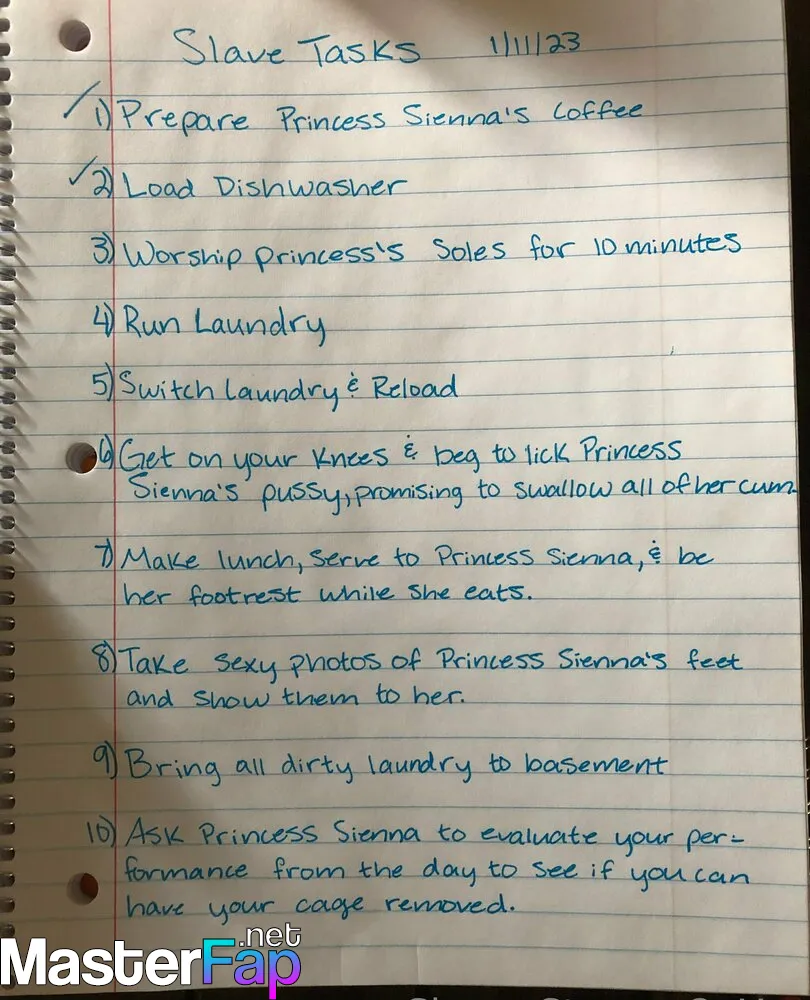 Slave Tasks 1/11/23
1) Prepare Princess Sienna's Coffee
2) Load Dishwasher
3) Worship princess's soles for 10 minutes
4) Run Laundry
5) Switch laundry & Reload
6) Get on your knees & beg to lick Princess
Sienna's pussy, promising to swallow all of her cum.
7) Make lunch, serve to Princess Sienna, & be
her footrest while she eats.
8) Take sexy photos of Princess Sienna's feet
and show them to her.
9) Bring all dirty laundry to basement
10) Ask Princess Sienna to evaluate your per-
formance from the day to see if you can
have your cage removed.
MasterFap.net